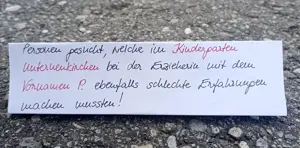 Personen gesucht, welche im Kindergarten
Unterneukirchen bei der Erzieherin mit dem
Vornamen P. ebenfalls schlechte Erfahrungen
machen mussten!